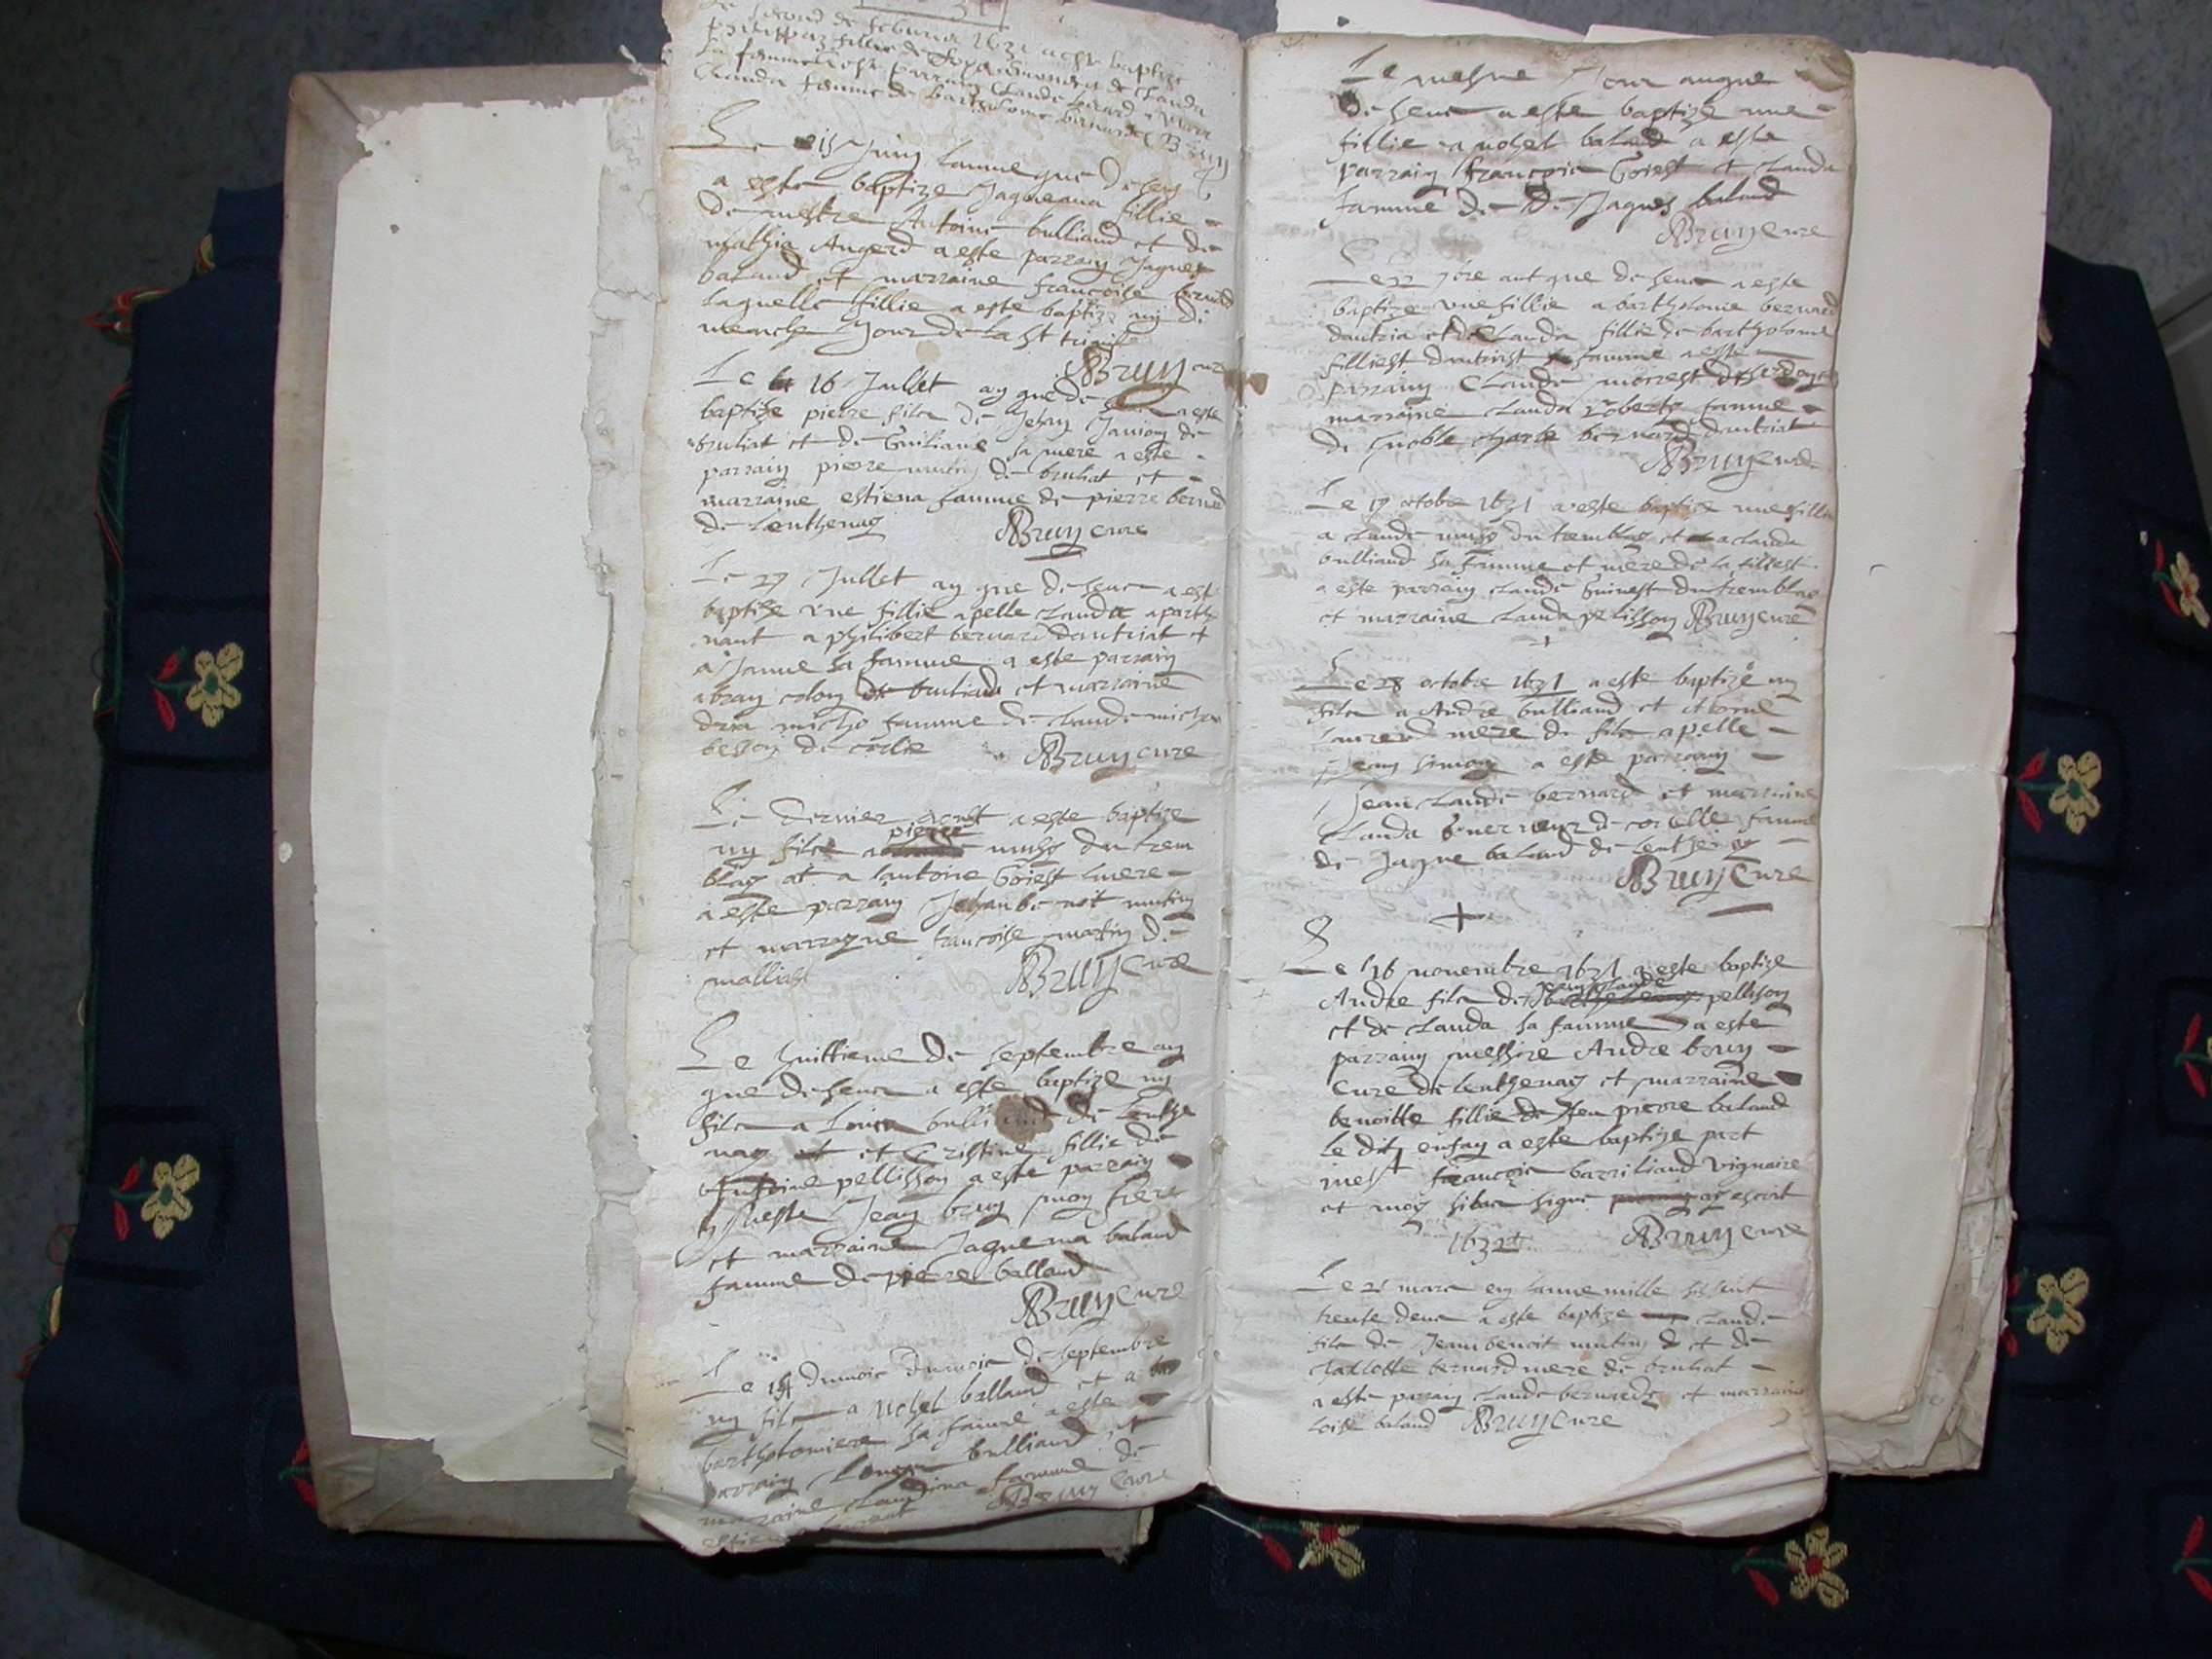 31
second de feburier 1631 a este baptize
fillie de de Clauda
sa femme a este parrain Claude
Clauda famme de bartholome bernard Bruy
Le 15 Juing lannee que desus
a este baptize Jaqueama fillie
de mestre Antoine bulliand et de
mathia Angerd a este parrain Jaques
baland et marraine francoise bernard
laquelle fillie a este baptize ung di
menche Jour de la st trinite
Bruy cure
Le 16 Jullet an que de seur a este
baptize pierre filz de Jehan Janion de
bruliat et de Guiliane sa mere a este
parrain pierre mutin de bruliat et
marraine estiena famme de pierre bernard
de lenthenay Bruy cure
Le 27 Jullet an que de seur a este
baptize une fillie apelle Clauda aparthe
nant a philibert bernard dautriat et
a Janne sa famme a este parrain
abray colon de bruliand et marraine
dria micho famme de claude michon
besson de corlie Bruy cure
Le dernier aoust a este baptize
pierre
ung filz a musy du trem
blay et a lantoine Goiest mere
a este parrain Jehan benoit mutin
et marrayne francoise martin de
malliast Bruy Cure
Le huittieme de septembre an
que deseur a este baptize ung
filz a Louis bulliand de lenthe
nay et Cristine fillie de
Antoine pellisson a este parrain
Jean bruy mon frere
et marraine Jaquema baland
famme de pierre balland
Bruy Cure
Le 14 dumois dumois de septembre
ung filz a nohel balland et a
bartholomiere sa famme a este
parrain Louys bulliand et
marraine Claudina famme de
Bruy Cure
Le mesme Jour anque
de seur a este baptize une
fillie a nohel baland a este
parrain francois Goiest et Clauda
famme de de Jaques baland
Bruy Cure
Le 22 7bre ant que de seur a este
baptize une fillie a bartholomie bernard
dautria et de Clauda fillie de bartholome
filliest dautriast sa famme a este
parrain Claude morrest
marraine Clauda Roberty famme
de noble charle bernard dautriat
Bruy cure
Le 17 octobre 1631 a este baptize une fillie
a claude musy du tremblay et a clauda
bulliand sa famme et mere de la fillest
a este parrain claude Guinest du tremblay
et marraine Clauda pelisson Bruy cure
+
Le 28 octobre 1631 a este baptize ung
filz a Andre bulliand et
laurend mere de filz apelle
Jean simon a este parrain
Jean claude bernard et marraine
Clauda de corlle famme
de Jaque baland de lenthenay
Bruy Cure
+
Le 16 novembre 1631 a este baptize
Jean claude
Andre filz de pellison
et de clauda sa famme a este
parrain messire Andre bruy
Cure de lenthenay et marraine
benoitte fillie de feu pierre baland
le dit enfan a este baptize part
mest francois barriliand vignaire
et moy sibas signe ay escrit
1632 Bruy Cure
Le 21 mars en lanne mille sis sent
trente deux a este baptize Claude
filz de Jean benoit mutin et de
Charlotte bernard mere de bruliat
a este parrain Claude bernard et marraine
loise baland Bruy Cure